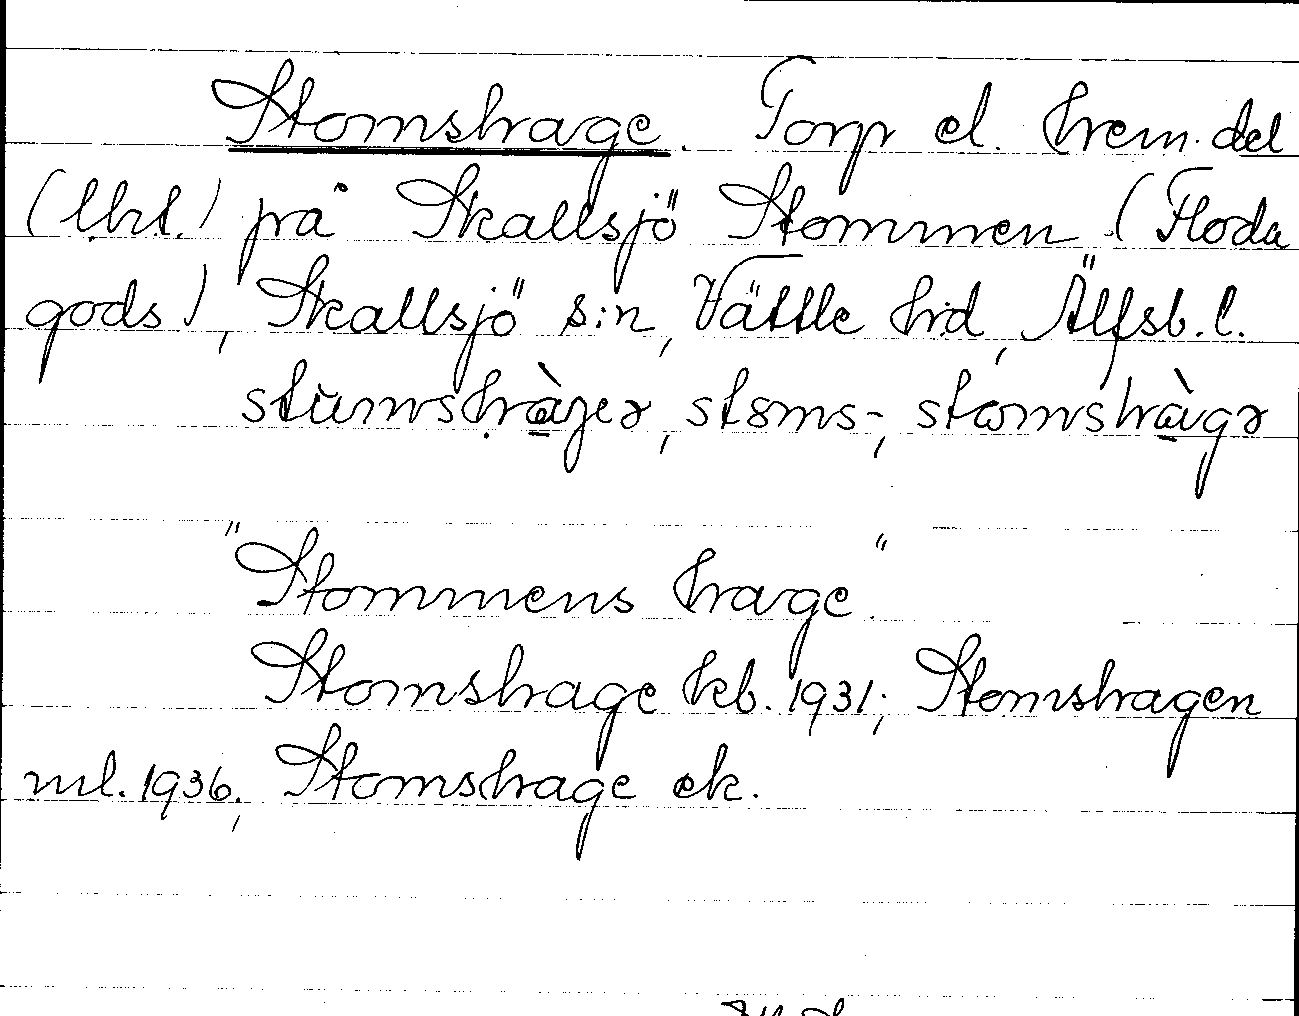 Stomshage. Torp el. hem.del
(lht.) på Skallsjö Stommen (Floda
gods), Skallsjö s:n, Vättle hd, Älfsb. l.
stumshàger, stoms-, stomshàgə
"Stommens hage."
Stomshage kb. 1931; Stomshagen
ml. 1936; Stomshage ek.